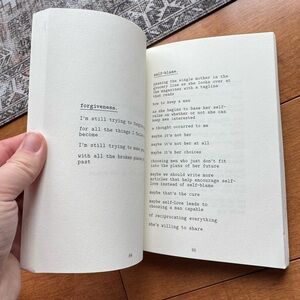 forgiveness.
I'm still trying to
for all the things I
become
I'm still trying to
with all the broken
past
self-blame.
passing the single mother in the
grocery line as she looks over at
the magazines with a tagline
that reads
how to keep a man
as she begins to base her self-
value on whether or not she can
keep men interested
a thought occurred to me
maybe it's not her
maybe it's not her at all
maybe it's her choices
choosing men who just don't fit
into the plans of her future
maybe we should write more
articles that help encourage self-
love instead of self-blame
maybe that's the cure
maybe self-love leads to
choosing a man capable
of reciprocating everything
she's willing to share